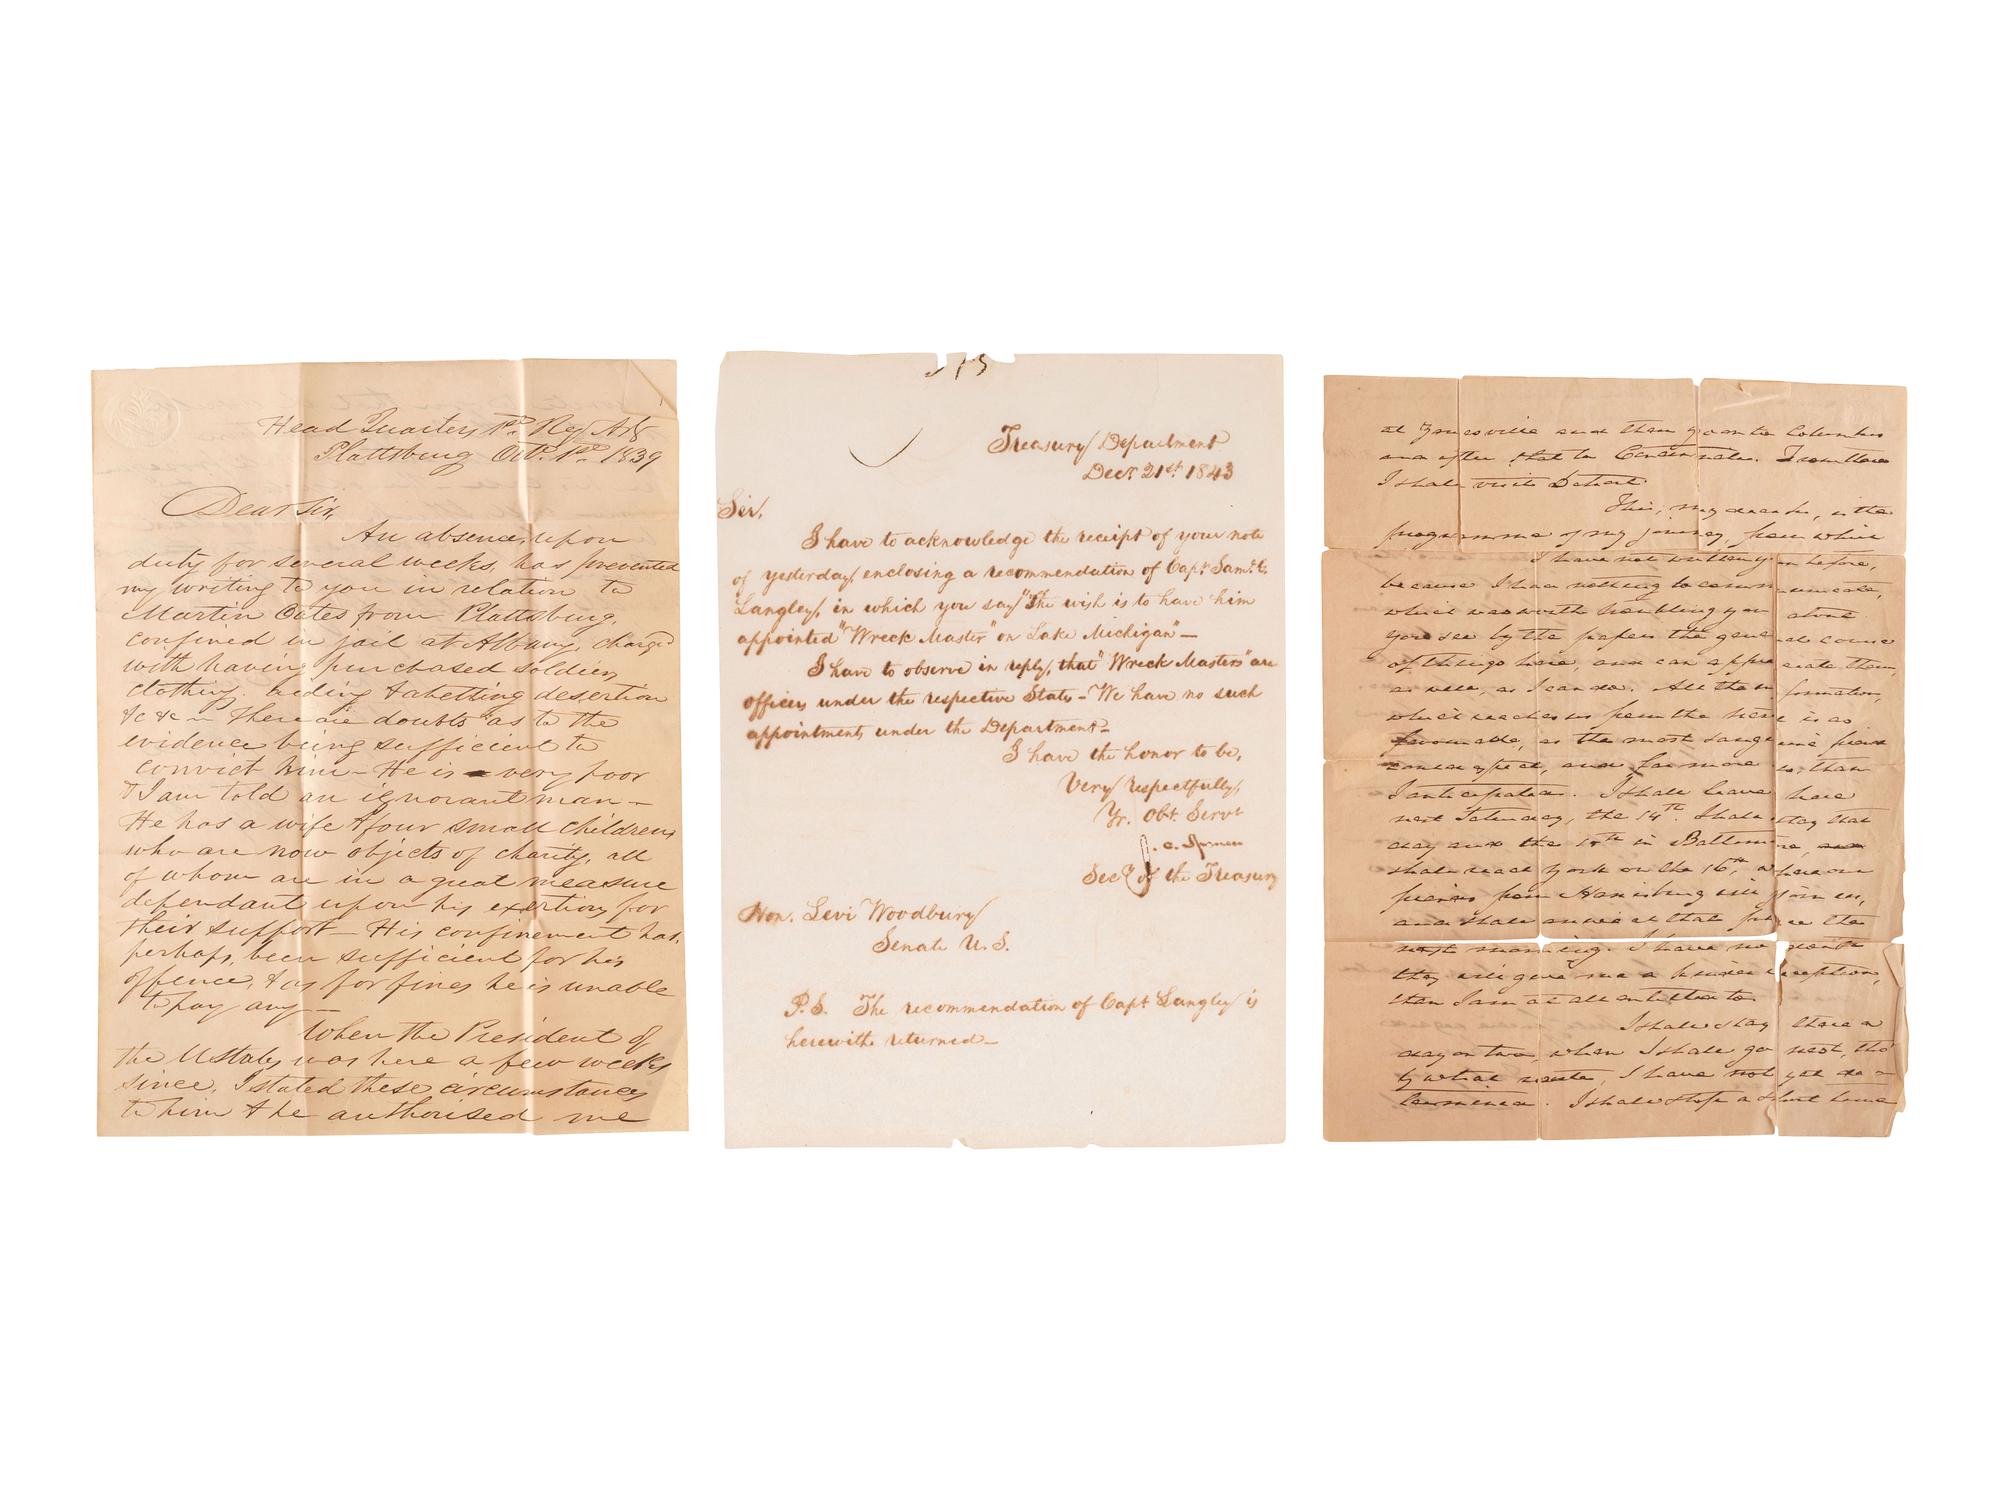 Head Quarters 1st Reg Art
Plattsburg Oct. 1st 1839
Dear Sir,
An absence, upon
duty for several weeks, has prevented
my writing to you in relation to
Martin Oates from Plattsburg,
confined in jail at Albany, charged
with having purchased soldiers
clothing. aiding & abetting desertion
&c &c – There are doubts as to the
evidence being sufficient to
convict him – He is very poor
& I am told an ignorant man –
He has a wife & four small children,
who are now objects of charity, all
of whom are in a great measure
dependant upon his exertions for
their support – His confinement has,
perhaps, been sufficient for his
offence, & as for fines he is unable
to pay any –
When the President of
the UStates was here a few weeks
since, I stated these circumstances
to him & he authorised me
Treasury Department
Decr. 21st 1843
Sir,
I have to acknowledge the receipt of your note
of yesterday, enclosing a recommendation of Capt. Saml. C.
Langley, in which you say "The wish is to have him
appointed "Wreck Master" on Lake Michigan" –
I have to observe in reply, that "Wreck Masters" are
officers under the respective States – We have no such
appointments under the Department –
I have the honor to be,
Very respectfully,
Yr. Obt. Servt
J. C. Spencer
Secy of the Treasury
Hon. Levi Woodbury
Senate U.S.
P.S. The recommendation of Capt Langley is
herewith returned –
at Zanesville and then go on to Columbus
and after that to Cincinnati. From there
I shall visit Detroit.
This, my dear sir, is the
programme of my journey, from which
I have not written you before,
because I had nothing to communicate,
which was worth troubling you about.
You see by the papers the general course
of things here, and can appreciate them,
as well, as I can do. All the information,
which reaches us from the here is as
favourable, as the most sanguine friend
could expect, and far more so, than
I anticipated. I shall leave here
next Saturday, the 14th. I shall stay that
day and the 15th in Baltimore,
shall reach York on the 16th, where our
friends from Harrisburg will join us,
and shall arrive at that place the
next morning. I have no doubt
they will give me a kinder reception,
than I am at all entitled to.
I shall stay there a
day or two, when I shall go next, tho'
by what route, I have not yet de-
termined. I shall stop a short time